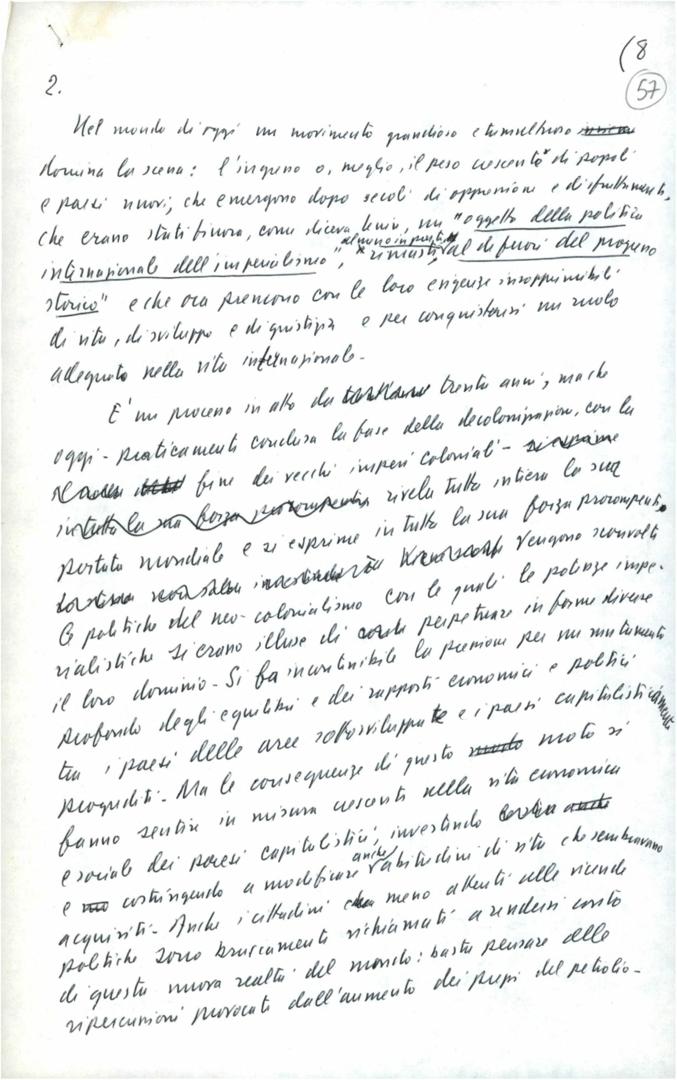 (8
57
2.
Nel mondo di oggi un movimento grandioso e tumultuoso
domina la scena: l'ingresso o, meglio, il peso crescente di popoli
e paesi nuovi, che emergono dopo secoli di oppressione e di sfruttamento,
che erano stati finora, come diceva Lenin, un "oggetto della politica
almeno in parte
internazionale dell'imperialismo", "rimasti al di fuori del progresso
storico" e che ora premono con le loro esigenze insopprimibili
di vita, di sviluppo e di giustizia e per conquistarsi un ruolo
adeguato nella vita internazionale.
E' un processo in atto da trenta anni, ma che
oggi - praticamente conclusa la fase della decolonizzazione, con la
fine dei vecchi imperi coloniali - si esprime
in tutta la sua forza prorompente rivela tutta intiera la sua
portata mondiale e si esprime in tutta la sua forza prorompente.
Vengono sconvolte
le politiche del neo-colonialismo con le quali le potenze impe-
rialistiche si erano illuse di perpetuare in forme diverse
il loro dominio. Si fa incontenibile la pressione per un mutamento
profondo degli equilibri e dei rapporti economici e politici
tra i paesi delle aree sottosviluppate e i paesi capitalisticamente
progrediti. Ma le conseguenze di questo moto si
fanno sentire in misura crescente nella vita economica
e sociale dei paesi capitalistici, investendo
anche
e costringendo a modificare abitudini di vita che sembravano
acquisite. Anche i cittadini meno attenti alle vicende
politiche sono bruscamente richiamati a rendersi conto
di questa nuova realtà del mondo: basta pensare alle
ripercussioni provocate dall'aumento dei prezzi del petrolio.